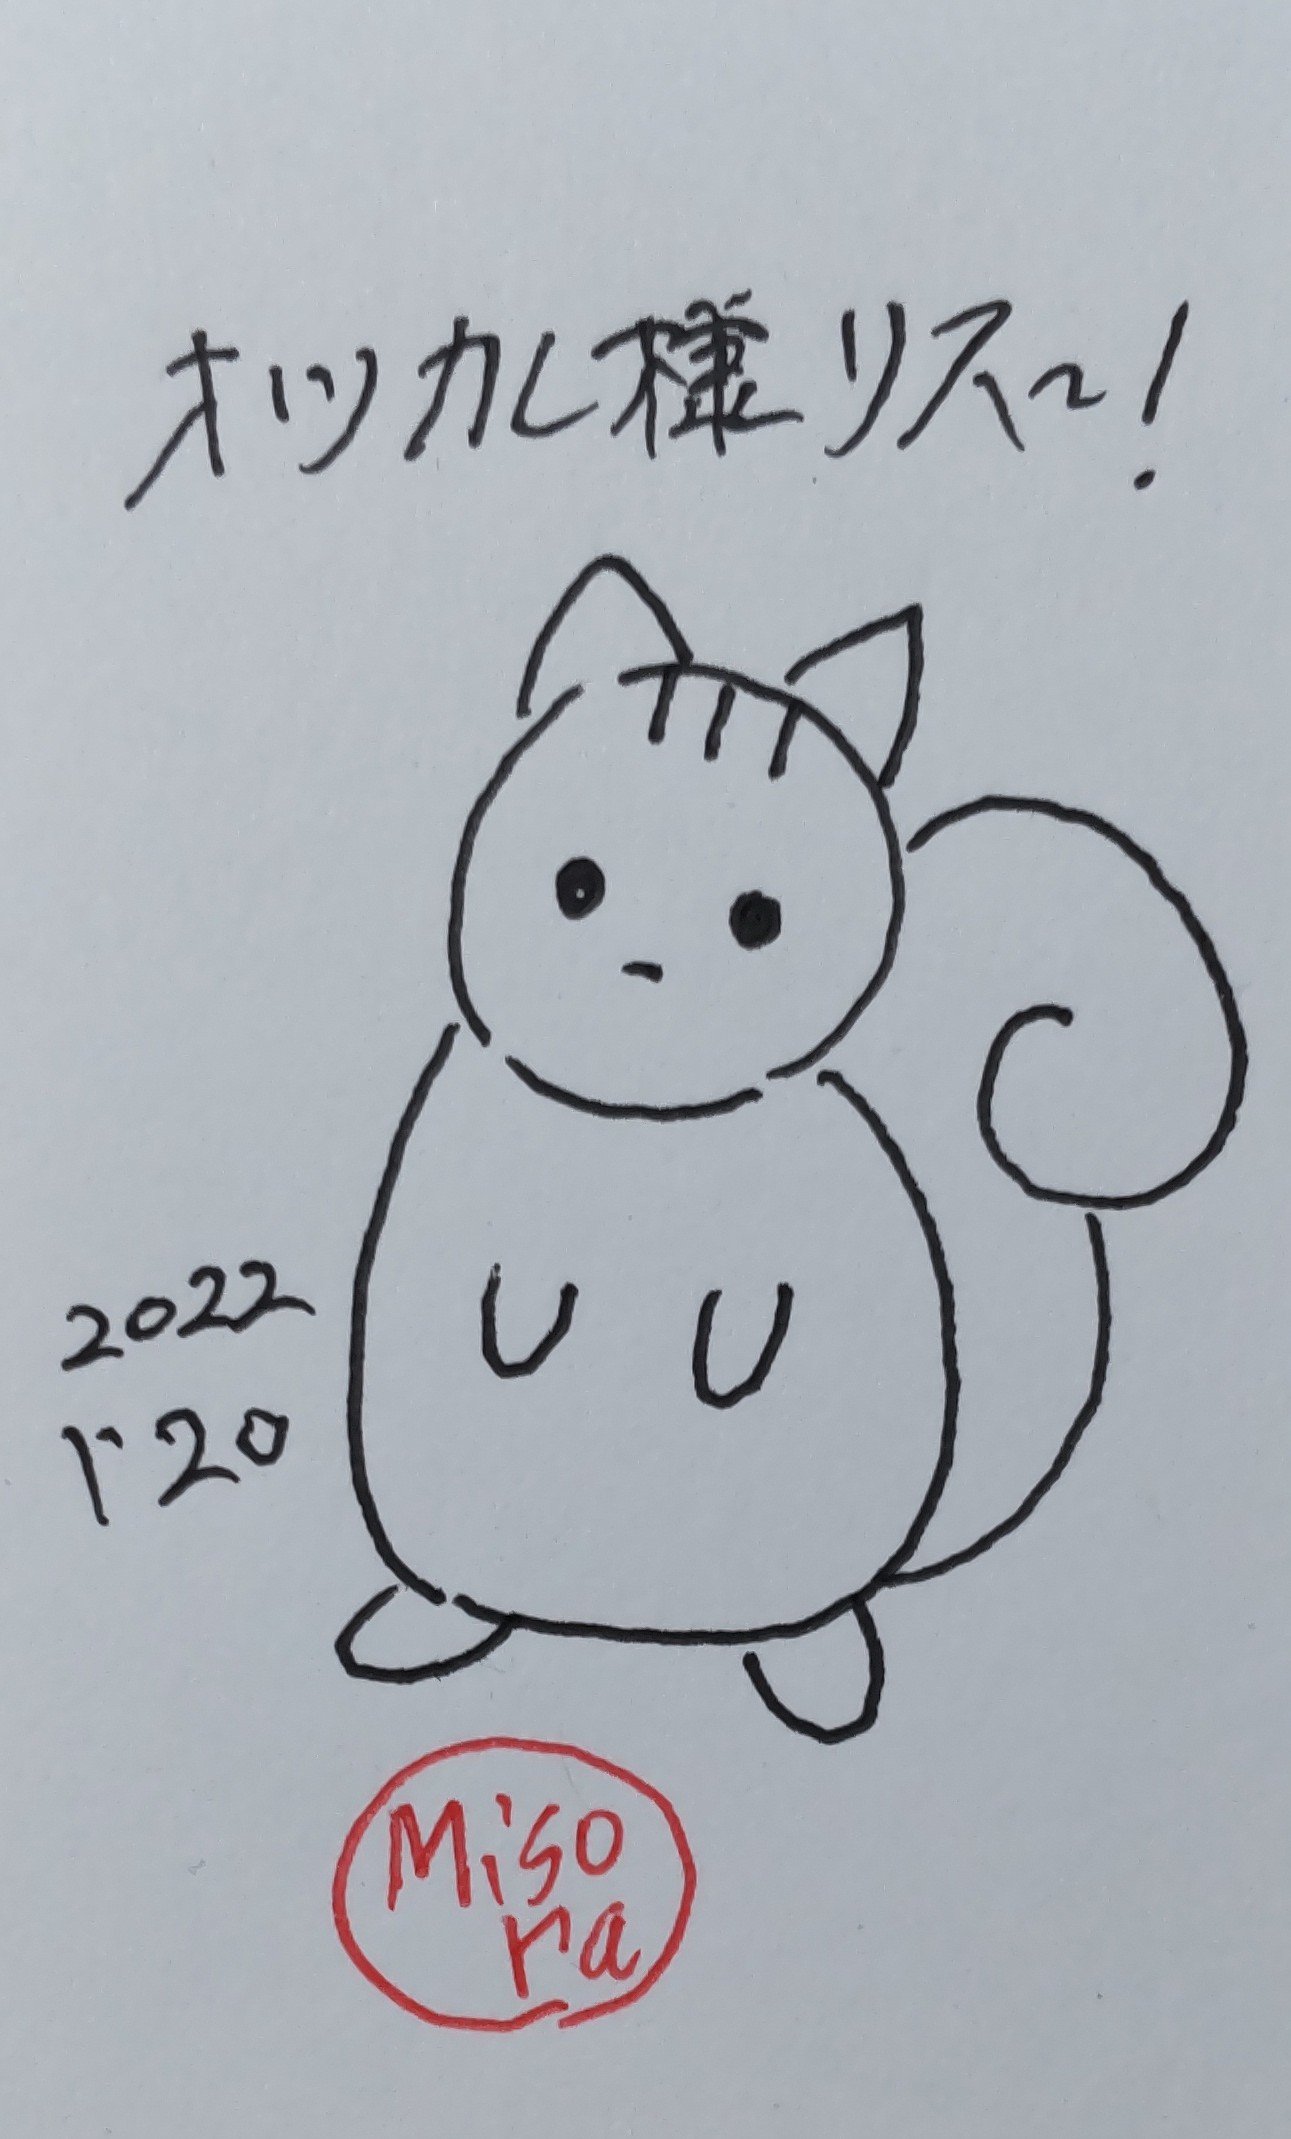 オツカレ様リス〜!
2022
1・20
Miso
ra